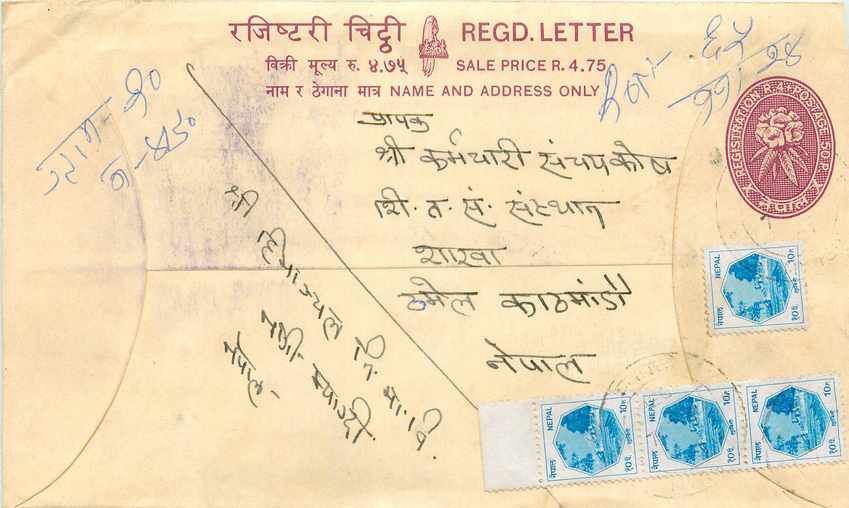 रजिष्टरी चिट्ठी REGD. LETTER
विक्री मूल्य रु. ४.७५ SALE PRICE R. 4.75
नाम र ठेगाना मात्र NAME AND ADDRESS ONLY
REGISTRATION R. 4 POSTAGE 50P.
नेपाल
प्रापक
श्री कर्मचारी संचयकोष
शि. त. सं. संस्थान
शाखा
ठमेल काठमांडौ
नेपाल
श्री हिमाञ्चल नि. मा. वि.
नेपाल
NEPAL 10P.
नेपाल १० पै.
NEPAL 10P.
नेपाल १० पै.
NEPAL 10P.
नेपाल १० पै.
NEPAL 10P.
नेपाल १० पै.